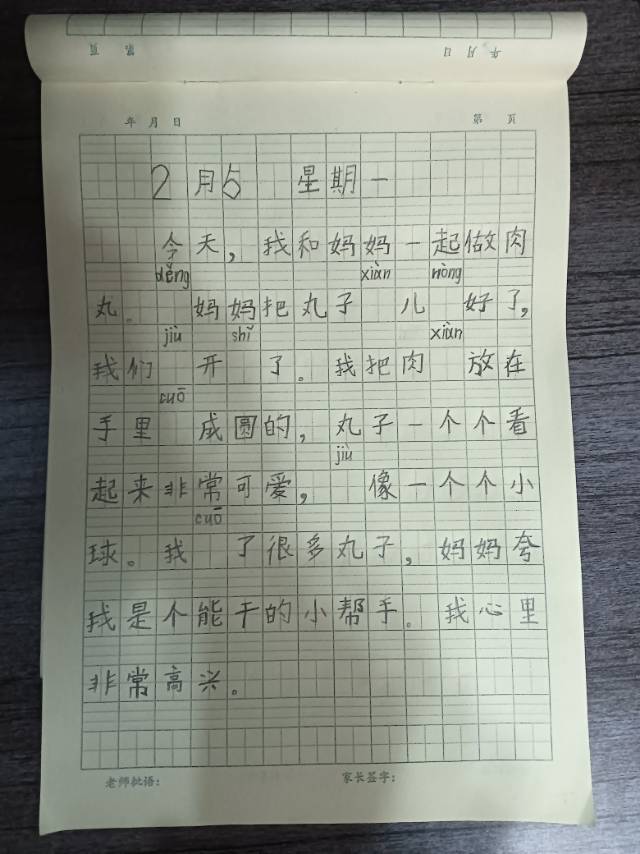 年 月 日 第 页
年 月 日 第 页
2月5 星期一
今天，我和妈妈一起做肉
děng xiàn nòng
丸。妈妈把丸子 儿 好了，
jiù shǐ xiàn
我们 开 了。我把肉 放在
cuō
手里 成圆的，丸子一个个看
jiù
起来非常可爱， 像一个个小
cuō
球。我 了很多丸子，妈妈夸
我是个能干的小帮手。我心里
非常高兴。
老师批语： 家长签字：